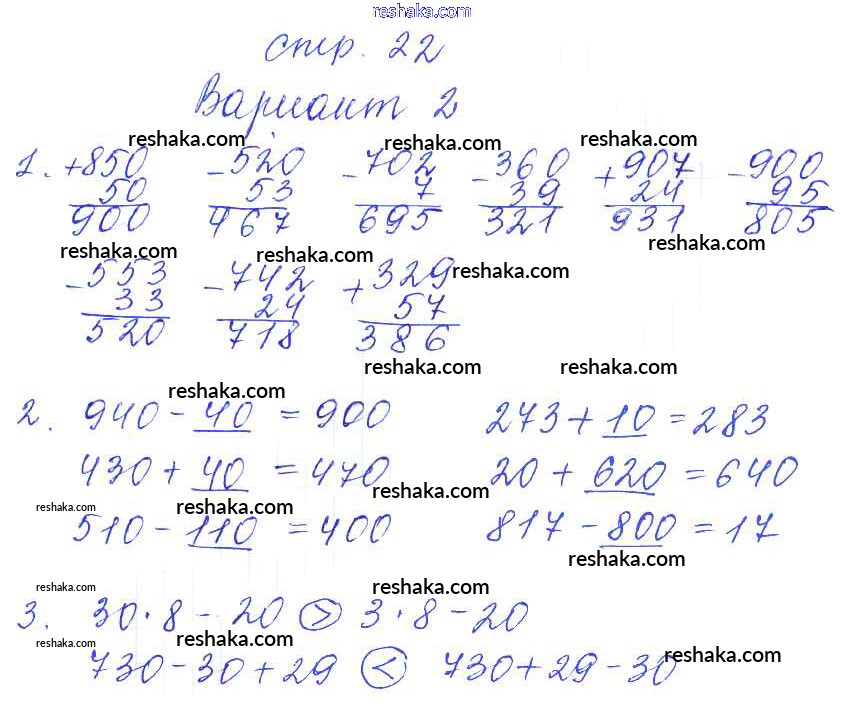 reshaka.com
стр. 22
Вариант 2
reshaka.com reshaka.com reshaka.com
1. +850 -520 -702 -360 +907 -900
50 53 7 39 24 95
900 467 695 321 931 805
reshaka.com reshaka.com reshaka.com reshaka.com
-553 -742 +329
33 24 57
520 718 386
reshaka.com reshaka.com reshaka.com
2. 940 - 40 = 900 273 + 10 = 283
430 + 40 = 470 20 + 620 = 640
reshaka.com reshaka.com reshaka.com
510 - 110 = 400 817 - 800 = 17
reshaka.com
reshaka.com reshaka.com
3. 30 · 8 - 20 > 3 · 8 - 20
reshaka.com reshaka.com reshaka.com
730 - 30 + 29 < 730 + 29 - 30